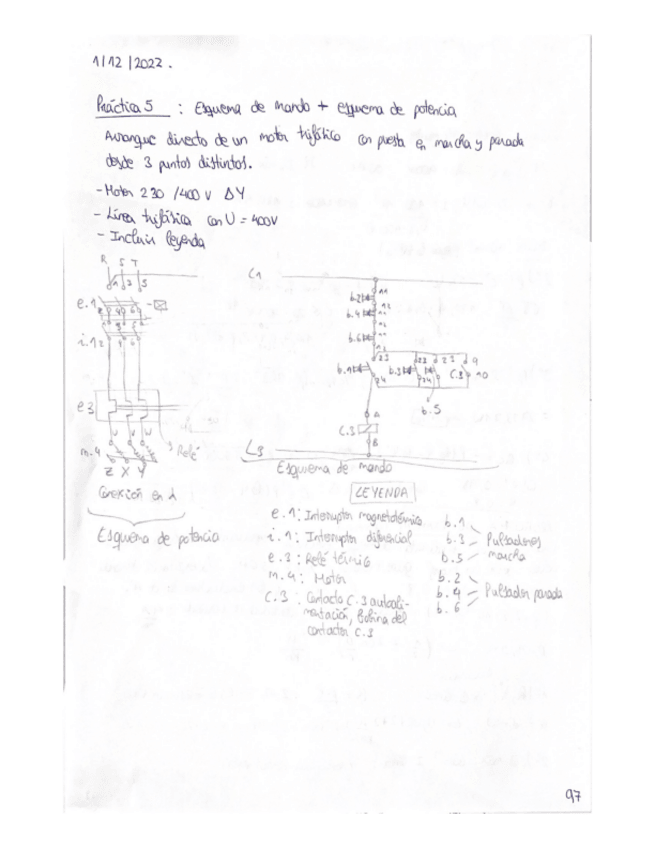 1/12/2022.
Práctica 5 : Esquema de mando + esquema de potencia
Arranque directo de un motor trifásico con puesta en marcha y parada
desde 3 puntos distintos.
- Motor 230/400 V ΔY
- Línea trifásica con U = 400V
- Incluir leyenda
R S T
1 3 5
e.1
2 4 6
i.1
e3
Relé
U V W
m.4
Z X Y
Conexión en λ
Esquema de potencia
L1
b.2
b.4
b.6
11
12
b.1
23
24
b.3
b.5
C.3
9
10
A
C.3
B
L3
Esquema de mando
LEYENDA
e.1: Interruptor magnetotérmico
i.1: Interruptor diferencial
e.3: Relé térmico
m.4: Motor
C.3: Contacto C.3 autoali-
mentación, Bobina del
contactor C.3
b.1
b.3
b.5
Pulsadores
marcha
b.2
b.4
b.6
Pulsador parada
97